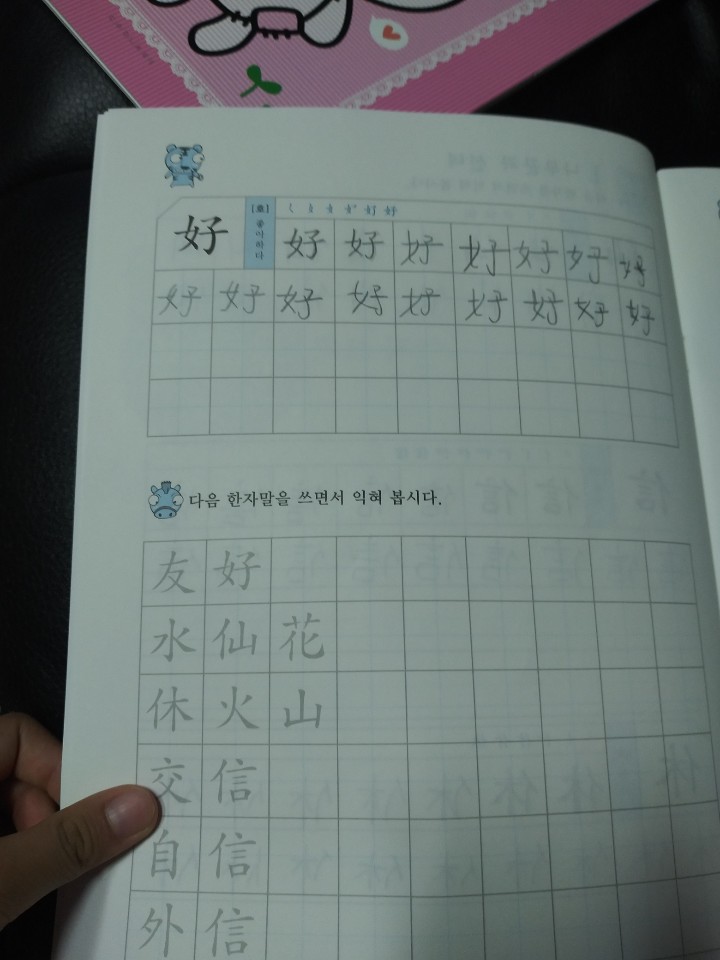 好 [호] 좋아하다 好 好 好 好 好 好 好
好 好 好 好 好 好 好 好 好
다음 한자말을 쓰면서 익혀 봅시다.
友 好
水 仙 花
休 火 山
交 信
自 信
外 信